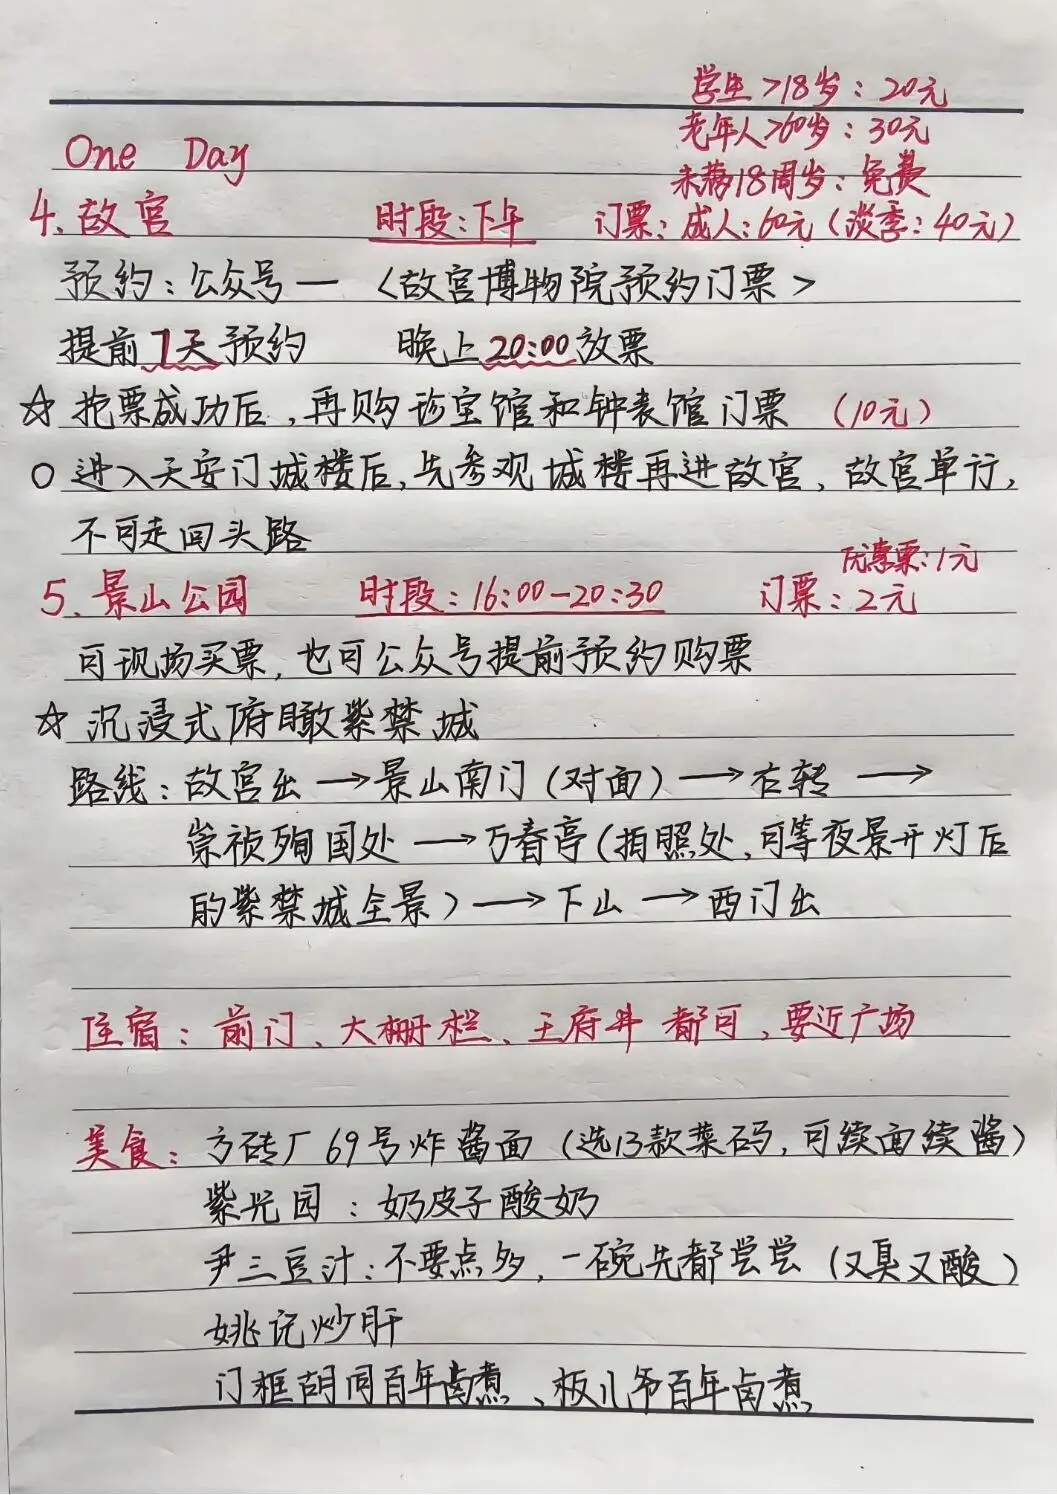 学生>18岁：20元
老年人>60岁：30元
One Day
未满18周岁：免费
4.故宫 时段:下午 门票：成人：60元（淡季：40元）
预约：公众号—〈故宫博物院预约门票>
提前7天预约 晚上20:00放票
☆ 抢票成功后,再购珍宝馆和钟表馆门票（10元）
○ 进入天安门城楼后,先参观城楼再进故宫,故宫单行,
不可走回头路
优惠票：1元
5.景山公园 时段：16:00-20:30 门票：2元
可现场买票,也可公众号提前预约购票
☆ 沉浸式俯瞰紫禁城
路线：故宫出→景山南门(对面)→右转→
崇祯殉国处→万春亭(拍照处,可等夜景开灯后
的紫禁城全景)→下山→西门出
住宿：前门、大栅栏、王府井都可,要近广场
美食：方砖厂69号炸酱面（选13款菜码,可续面续酱）
紫光园：奶皮子酸奶
尹三豆汁：不要点多,一碗先都尝尝（又臭又酸）
姚记炒肝
门框胡同百年卤煮、板儿爷百年卤煮